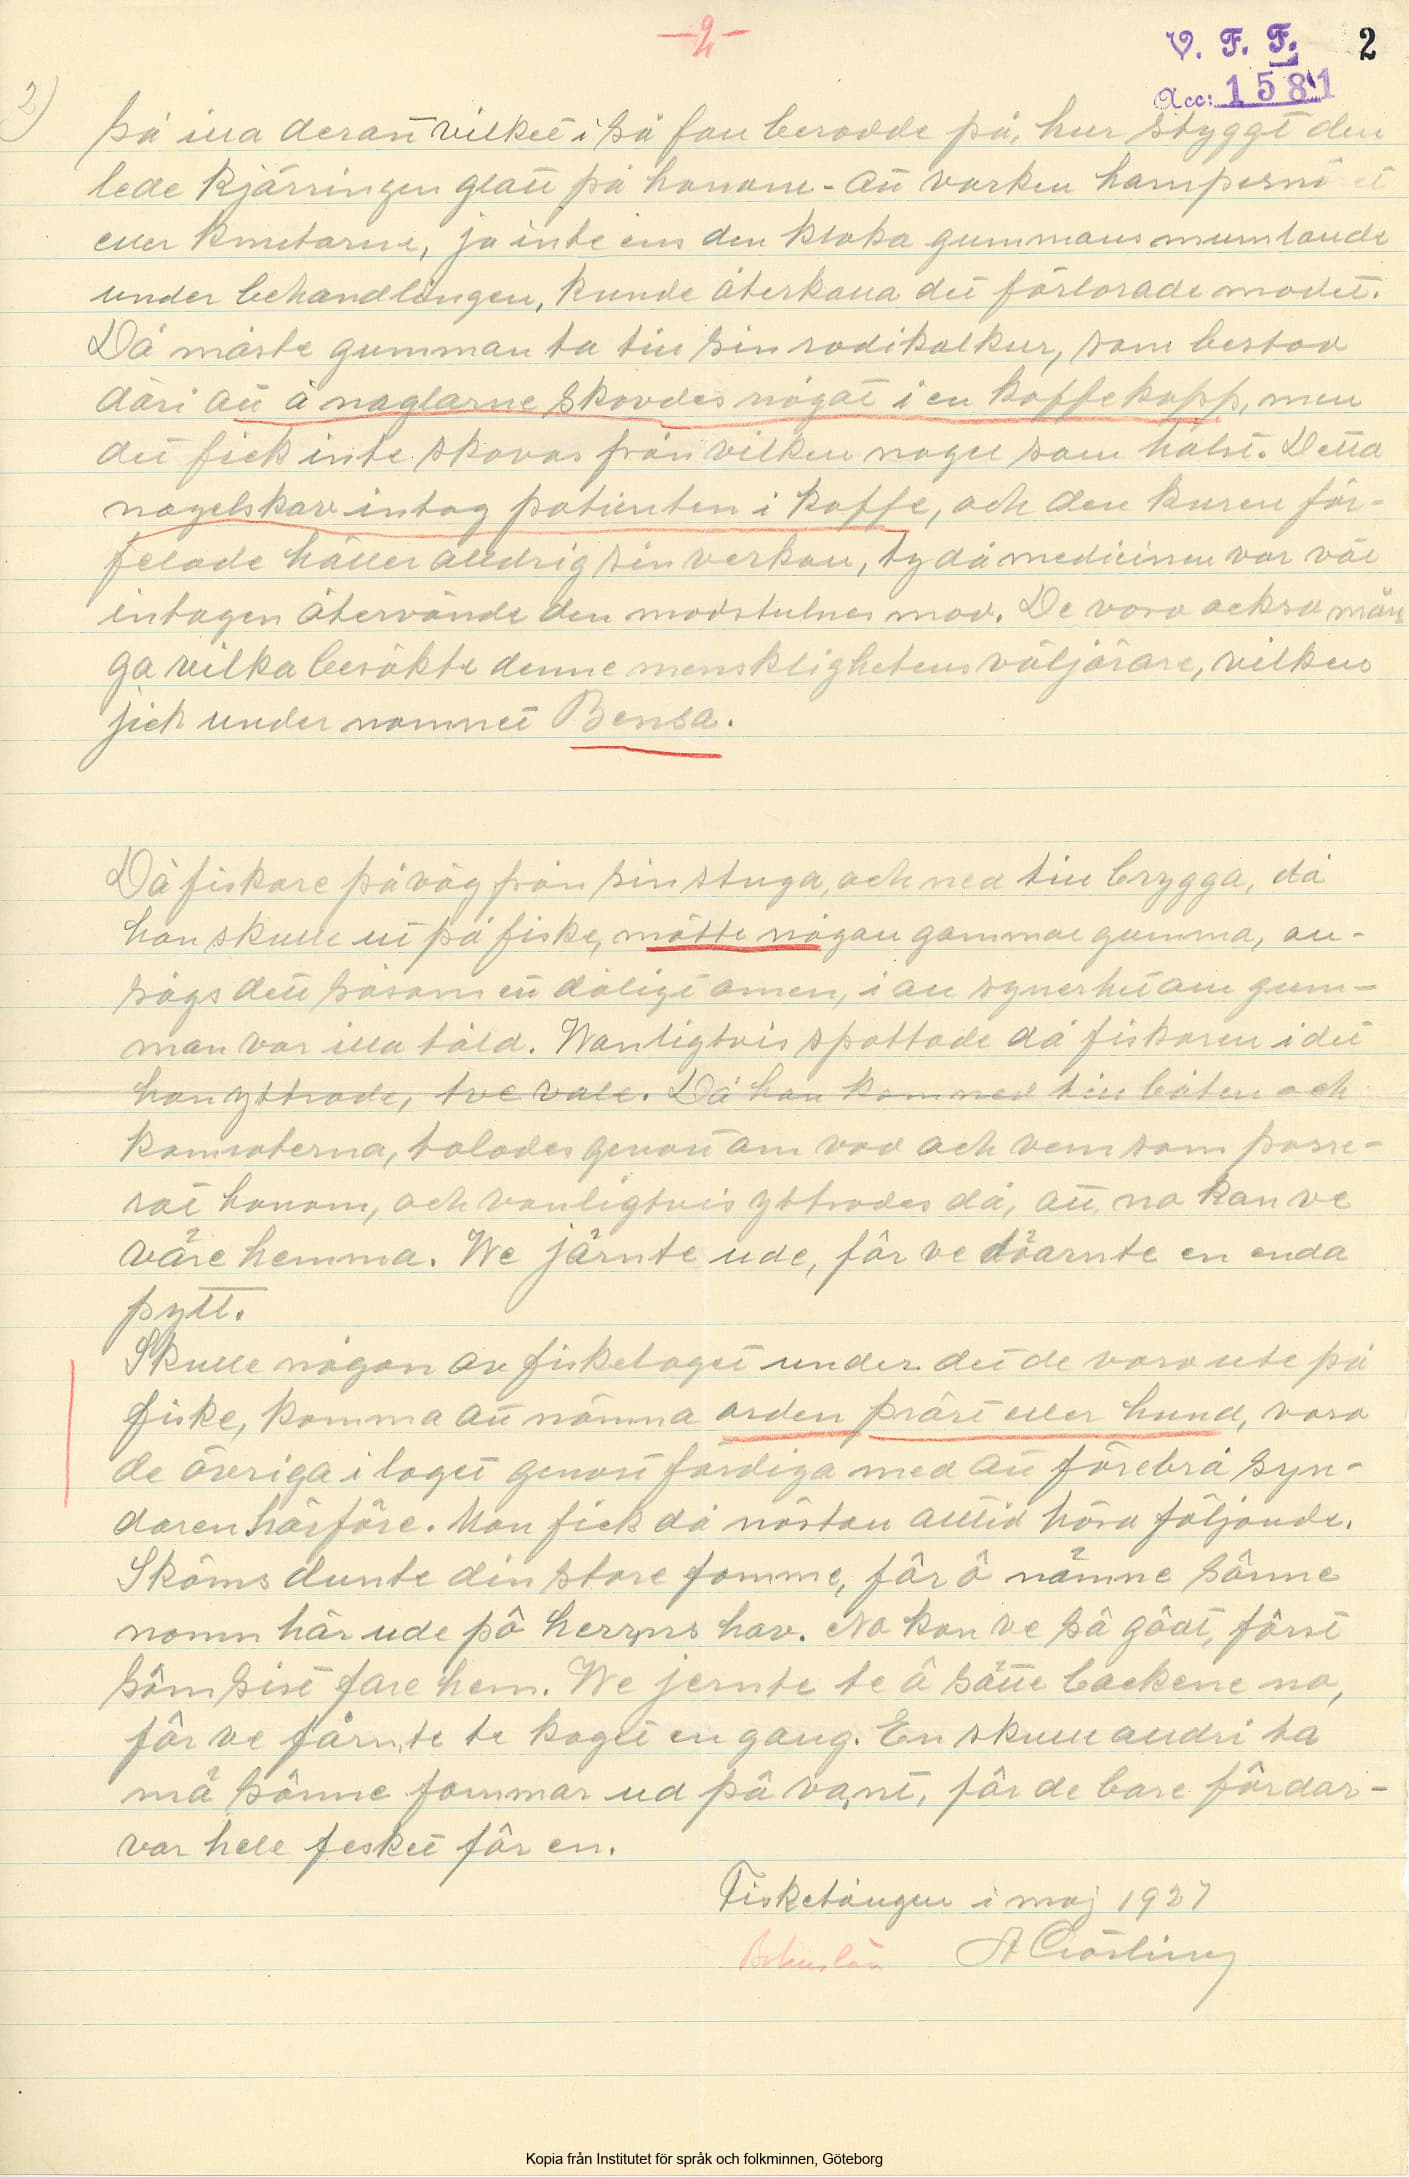 -2-
V. F. F. 2
Acc: 1581
2)
så illa deran vilket i så fall berodde på, hur styggt den
lede kjärringen glatt på honom - att varken
eller knutarne, ja inte ens den kloka gummans mumlande
under behandlingen, kunde återkalla det förlorade modet.
Då måste gumman ta till sin radikalkur, som bestod
däri att å naglarne skavdes något i en kaffekopp, men
det fick inte skavas från vilken nagel som hälst. Detta
nagelskav intog patienten i kaffe, och den kuren för-
felade häller alldrig sin verkan, ty då medicinen var väl
intagen återvände den modstulnes mod. De voro också mån
ga vilka besökte denne mensklighetens väljörare, vilken
jick under namnet Bensa.
Då fiskare på väg från sin stuga, och ned till brygga, då
han skulle ut på fiske, mötte någon gammal gumma, an-
sågs dett såsom ett dåligt omen, i all synerhet om gum-
man var illa tåld. Wanligtvis spottade då fiskaren i det
han yttrade, tve vale. Då han kom ned till båten och
kamraterna, talades genast om vad och vem som passe-
rat honom, och vanligtvis yttrades då, att na kan ve
väre hemma. We järnte ude, fôr ve döarnte en enda
pytt.
Skulle någon av fiskelaget under det de voro ute på
fiske, komma att nämna orden präst eller hund, voro
de övriga i laget genast färdiga med att förebrå syn-
daren härföre. Man fick då nästan alltid höra följande.
Skäms dunte din store fomme, fôr ô nämne sônne
namn här ude pô herrns hav. Na kan ve sô gôdt, fôrst
sôm sist fare hem. We jernte te ô sätte backene na,
fôr ve fårnte te koget en gang. En skulle alldri ta
mä sônne fommar ud pô vant, fôr de bare fôrdar-
var hele fesket fôr en.
Fisketången i maj 1927
Bohuslän A Cröling
Kopia från Institutet för språk och folkminnen, Göteborg